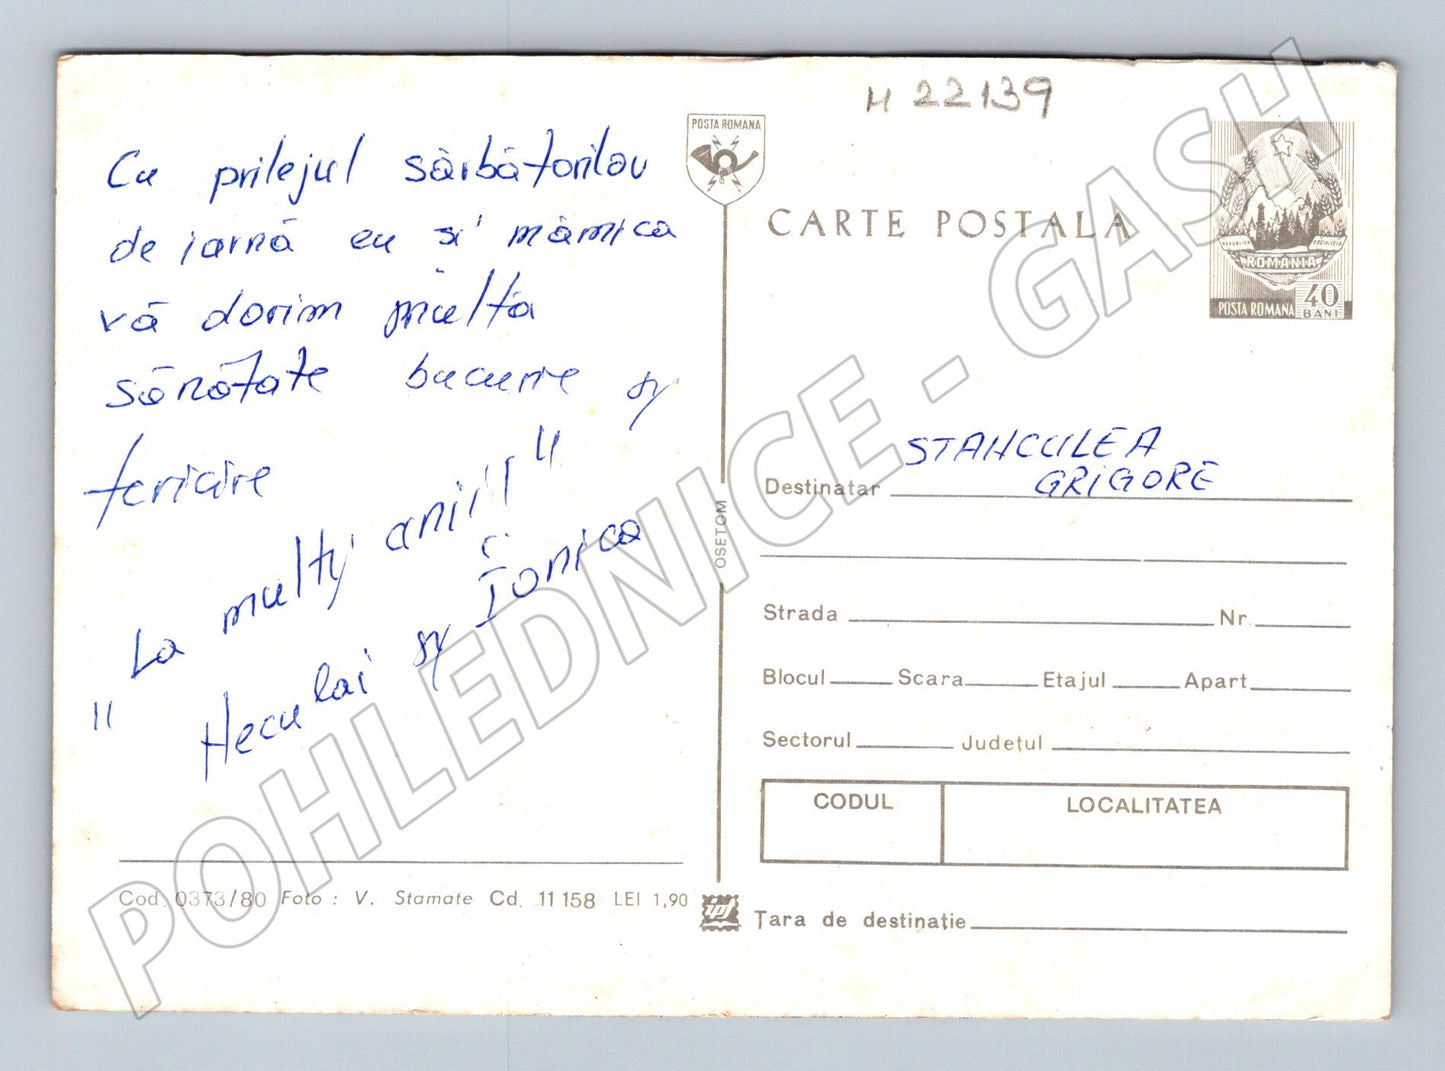 Cu prilejul sărbătorilou
de iarnă eu și mămica
vă dorim multă
sănătate bucurie și
fericire
"La mulți ani!!"
Neculai și Ionica
Cod. 0373/80 Foto : V. Stamate Cd. 11158 LEI 1,90
OSETOM
N 22139
POSTA ROMANA
CARTE POSTALA
REPUBLICA SOCIALISTA
ROMANIA
POSTA ROMANA 40 BANI
Destinatar STANCULEA
GRIGORE
Strada Nr.
Blocul Scara Etajul Apart
Sectorul Județul
CODUL LOCALITATEA
Țara de destinație
POHLEDNICE - GASH